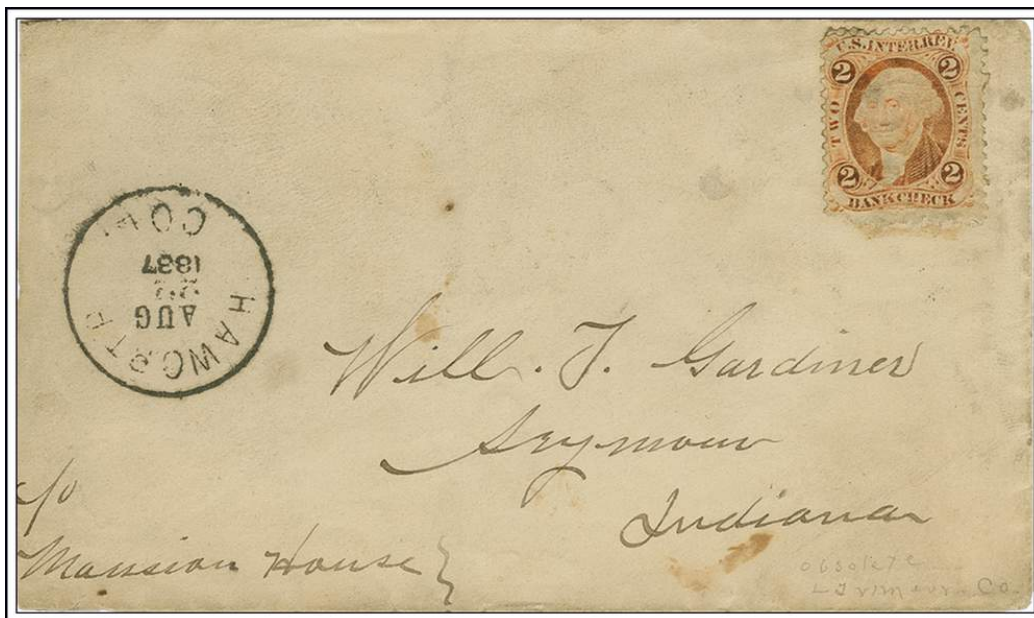 U.S. INTER. REV.
2 2
TWO CENTS
2 2
BANK CHECK
HAWORTH
AUG
1887
COL
Will. T. Gardiner
Seymour
Indiana
c/o
Mansion House
obsolete
Larimer Co.